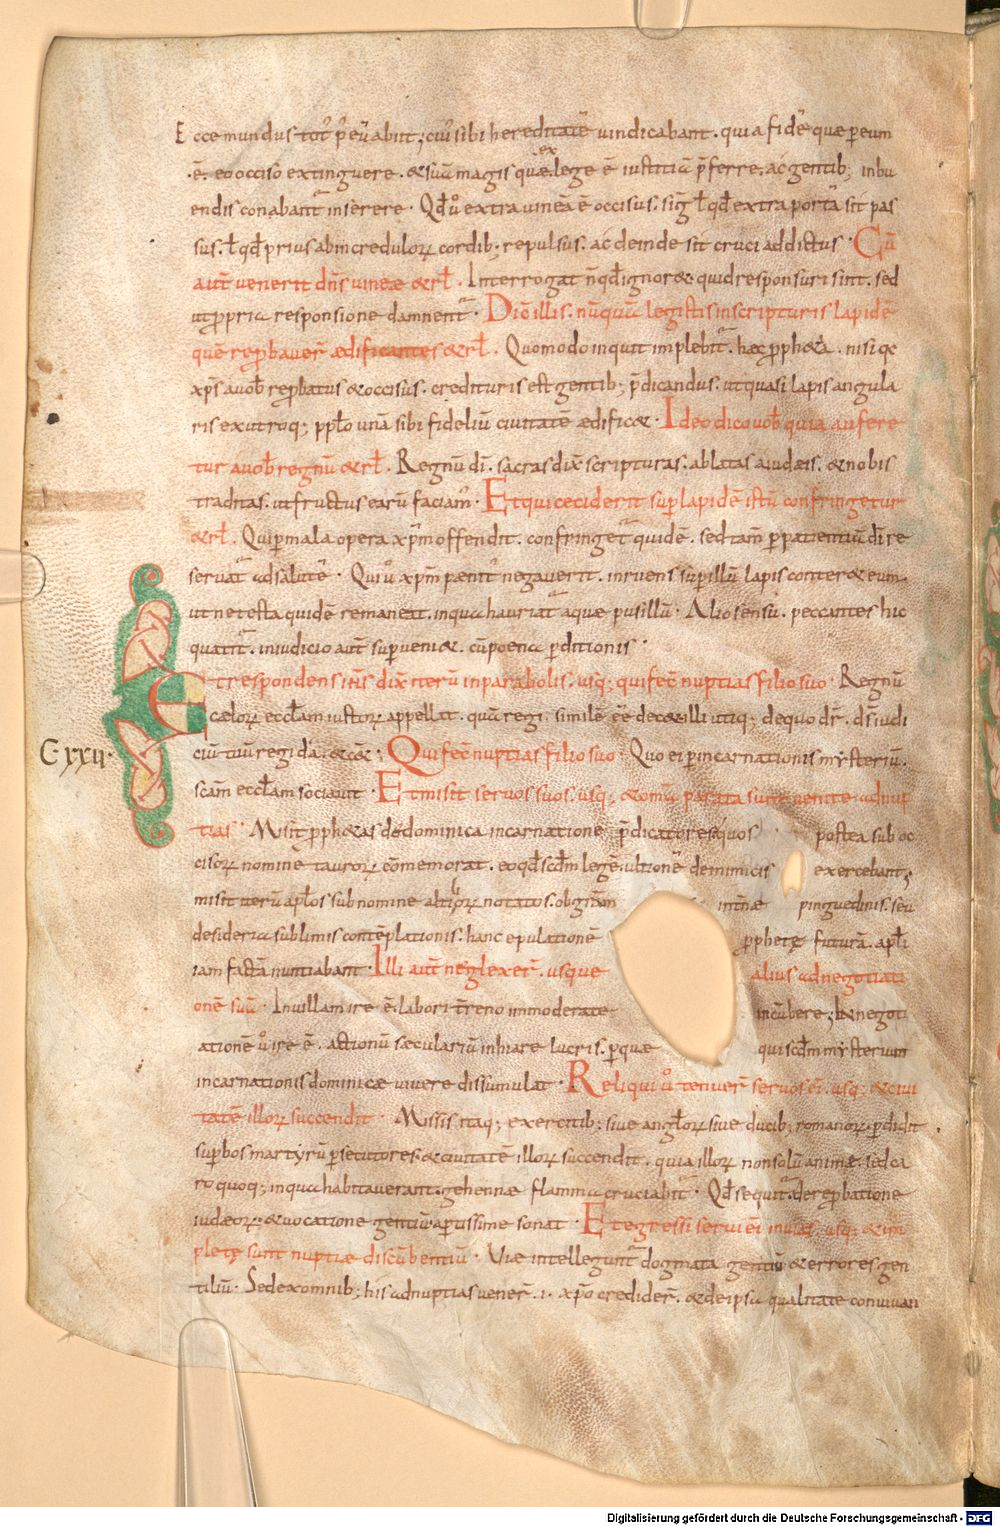 Ecce mundus tot' p' eū abiit; cui' sibi hereditatē vindicabant. quia fidē quæ p eum
.ē. eo occiso extinguere. & suū magis quæ ex lege ē iustitiā p̄ferre. ac gentib; inbu
endis conabant inserere. Qd ů extra vineā ē occisus. sig ł qd extra portā sit pas
sus. ł qd prius ab incredulorꝝ cordib; repulsus. ac deinde sit cruci addictus. Cū
aut̄ venerit dn̄s vineæ & rł. Interrogat n̄ qd ignor& quid responsuri sint. sed
ut ppria responsione damnent. Dic̄ illis. nūquā legistis in scripturis lapidē
quē rep̱baver̄ ædificantes & rł. Quomodo inquit implebit̄ hæc pph&ia. nisi qc
xp̄s a uob̄ rep̱batus & occisus. credituris est gentib; p̄dicandus. ut quasi lapis angula
ris ex utroq; pp̄lo unā sibi fideliū ciuitatē ædific&. Ideo dico uob̄ quia aufere
tur a uob̄ regnū & rł. Regnū dī. sacras dix̄ scripturas. ablatas a iudæis. & nobis
traditas. ut fructus earū faciam'. Et qui ceciderit sup lapidē istū confringetur
& rł. Qui p mala opera xp̄m offendit. confringet̄ quidē. sed tam̄ p patientiū dī re
servat̄ ad salutē. Qui ů xp̄m penit' negaverit. inruens sup illū lapis conter& eum.
ut ne testa quidē remaneat. in qua hauriat̄ aquæ pusillū. Alio sensu. peccantes hic
quatit̄. in iudicio aut̄ supveni&. cū poena pditionis.
Et respondens ih̄s dix̄ iterū in parabolis. usq; qui fec̄ nuptias filio suo. Regnū
cælorꝝ eccłam iustorꝝ appellat. quā regi. similē ēe dec& illi utiq; de quo dr̄. ds̄ iudi
Cxxii.
ciū tuū regi da. & c&. Qui fec̄ nuptias filio suo. Quo ei p incarnationis mysteriū.
scām eccłam sociavit. Et misit servos suos. usq; & omīa parata sunt venite ad nup
tias. Misit pph&as de dominica incarnatione p̄dicatores quos postea sub oc
cisorꝝ nomine taurorꝝ cōmemorat. eo qd scdm legē ultionē de inimicis exercebant;
misit uerū apłos sub nomine altiliorꝝ notatos. ob gr̄am int̄næ pinguedinis. seu
desideria sublimis contēplationis. hanc epulationē pphetę futurā. apłi
iam factā nuntiabant. Illi aut̄ neglexer̄. usque alius ad negotiati
onē suā. In villam ire ē labori t̄reno immoderate incūbere; In negoti
ationē ů ire ē. actionū sæculariū inhiare lucris. p quæ qui scdm mysterium
incarnationis dominicæ vivere dissimulat. Reliqui ů tenuer̄ servos ei'. usq; & ciui
tatē illorꝝ succendit. Missis itaq; exercitib; sive angłorꝝ sive ducib; romanorꝝ. pdidit
supbos martyrū psecutores. & ciuitatē illorꝝ succendit. quia illorꝝ non solū animæ. sed ca
ro quoq; in qua habitaverant. gehennæ flamma cruciabit̄. Qd sequit̄. de rep̱batione
iudæorꝝ. & vocatione gentiū aptissime sonat. Et egressi servi ei' in vias. usq; & im
pletę sunt nuptiæ discūbentiū. Viæ intellegunt̄ dogmata gentiū & errores gen
tiliū. Sed ex omnib; his ad nuptias vener̄. i. xp̄o credider̄. & de ipsa qualitate convivan
Digitalisierung gefördert durch die Deutsche Forschungsgemeinschaft - DFG